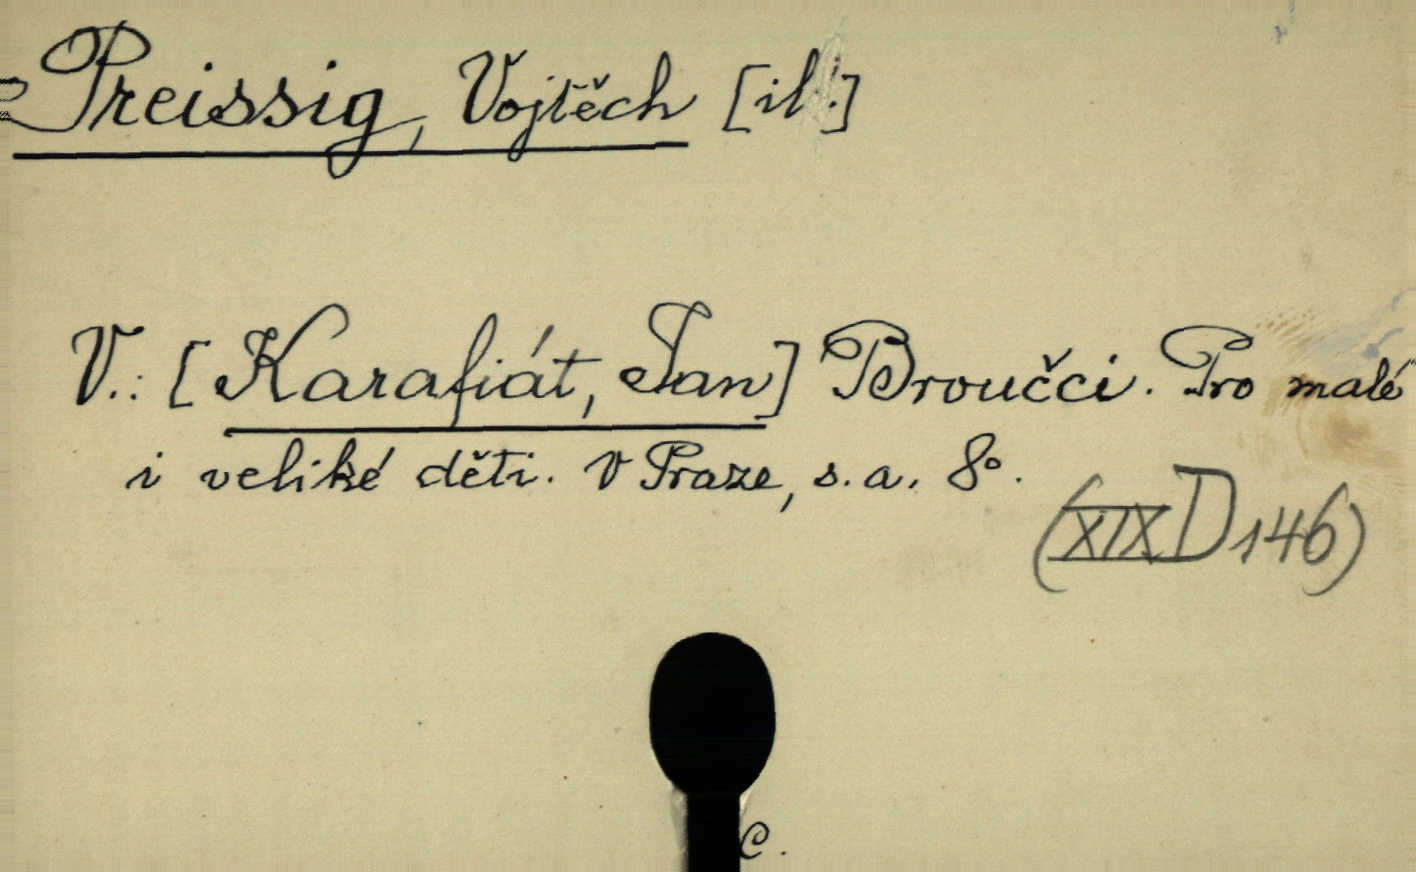 Preissig, Vojtěch [il.]
V.: [Karafiát, Jan] Broučci. Pro malé
i veliké děti. V Praze, s.a. 8°.
(XIX D 146)
C.